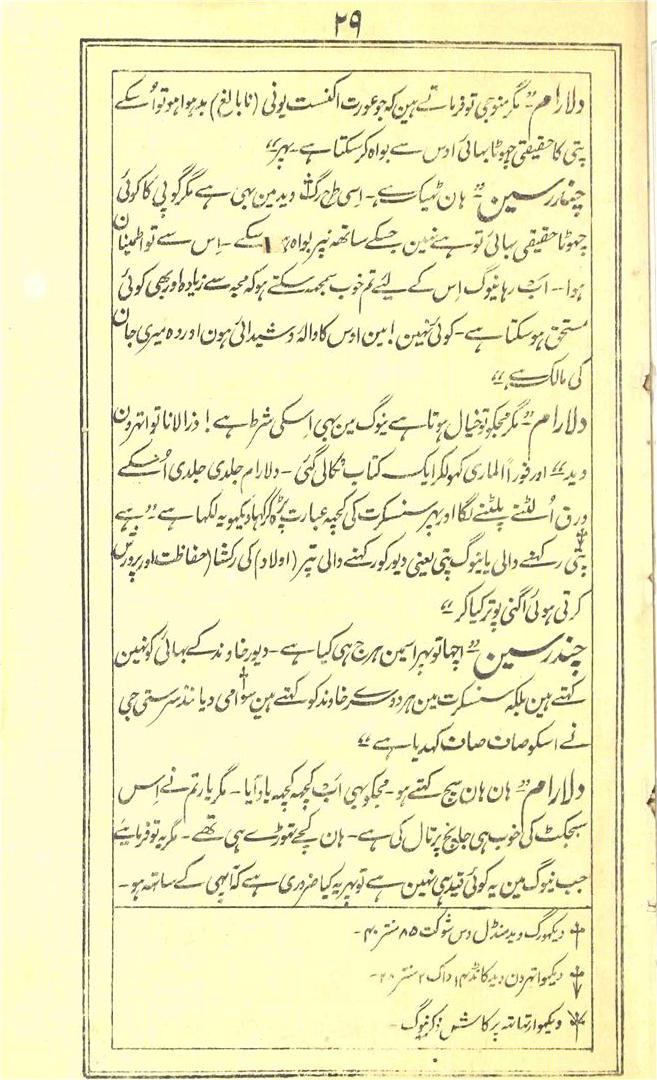 ۲۹
دلارام۔” مگر منوجی تو فرماتے ہین کہ جو عورت اکنست یونی (نابالغ) بدہوا ہو تو اُسکے
پتی کا حقیقی چہوٹا بہائی اوس سے بواہ کر سکتا ہے۔ پہر“
چندرسین” ہان ٹہیک ہے۔ اِسی طرح رگ† وید مین بہی ہے مگر گوپی کا کوئی
چہوٹا حقیقی بہائی تو ہے نہین جسکے ساتھہ پُنر بواہ ہو سکے۔ اِس سے تو اطمینان
ہوا۔ اب رہا نیوگ اِس کے لئے تم خوب سمجہہ سکتے ہو کہ مجہ سے زیادہ اور بھی کوئی
مستحق ہو سکتا ہے۔ کوئی نہین! مین اوس کا والہ و شیدائی ہون اور وہ میری جان
کی مالک ہے“
دلارام” مگر مجکو تو خیال ہوتا ہے نیوگ مین بہی اِسکی شرط ہے! ذرا لانا تو اتہرون
وید“ اور فوراً الماری کہولکر ایک کتاب نکالی گئی۔ دلارام جلدی جلدی اُسکے
ورق اُلٹنے پلٹنے لگا اور پہر سنسکرت کی کچہہ عبارت پڑہ کر کہا دیکہو یہ لکہا ہے۔” ہے
پتی رکہنے والی یا نیوگ پتی یعنی دیور کو رکہنے والی تیر (اولاد) کی رکشا (حفاظت اور پرورش
کرتی ہوئی اگنی ہوتر کیا کر“
چندرسین” اچہا تو پہر اسمین ہرج ہی کیا ہے۔ دیور خاوند کے بہائی کو نہین
کہتے ہین بلکہ سنسکرت مین ہر دوسرے خاوند کو کہتے ہین سوامی دیانند سرستی جی
نے اسکو صاف صاف کہدیا ہے“
دلارام” ہان ہان سچ کہتے ہو۔ مجکو بہی اب کچہہ کچہہ یاد آیا۔ مگر یار تم نے اِس
سبجکٹ کی خوب ہی جانچ پرتال کی ہے۔ ہان کچے تہوڑے ہی تہے۔ مگر یہ تو فرمایئے
جب نیوگ مین یہ کوئی قید ہی نہین ہے تو پہر یہ کیا ضروری ہے کہ آپہی کے ساتہہ ہو۔
† دیکہو رگ وید منڈل دس شوکت ۸۵ منتر ۴۰۔
‡ دیکہو اتہرون وید کانڈ ۱۴ واک ۲ منتر ۲۸۔
دیکہو ارتہاتہ پرکاش ذکر نیوگ۔